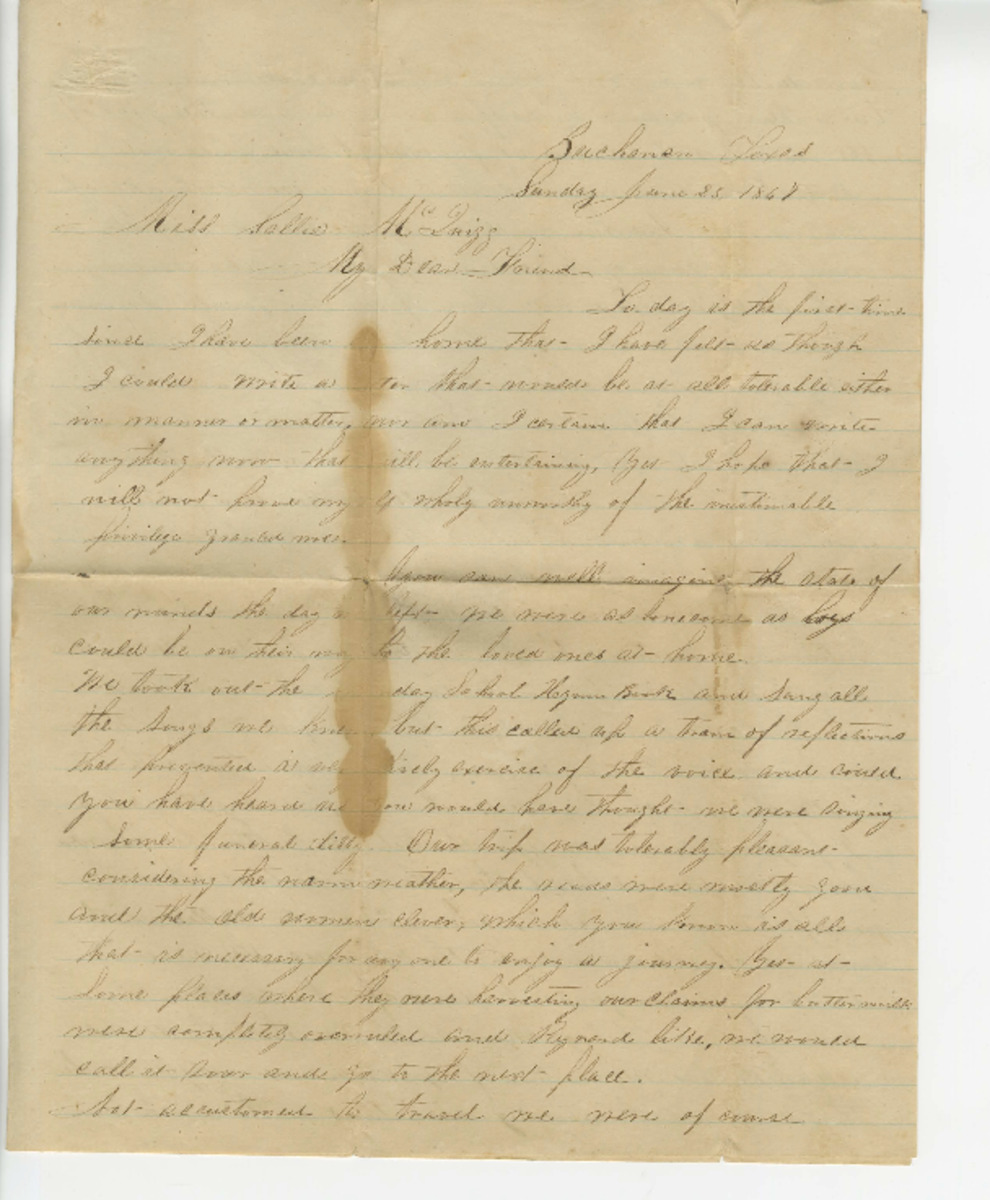 Buchanan Texas
Sunday June 23 1867
Miss Sallie McQuigg
My Dear Friend
To day is the first time
since I have been home that I have felt as though
I could write a ter that would be at all tolerable either
in manner or matter, nor am I certain that I can write
anything now that ill be entertaining, Yet I hope that I
will not prove my lf wholy unworthy of the inestimable
privilege granted me.
You can well imagine the state of
our minds the day left we were as lonesome as boys
could be on their way to the loved ones at home.
We took out the day School Hymn Book and sang all
the songs we kne but this called up a train of reflections
that prevented a ve lively exercise of the voice and could
you have heard us you would have thought we were singing
some funeral ditty. Our trip was tolerably pleasant
considering the warm weather, the roads were mostly good
and the old women clever, which you know is all
that is necessary for any one to enjoy a journey. Yet at
some places where they were harvesting our claims for buttermilk
were completely overruled and Rynard like, we would
call it sour and go to the next place.
Not accustomed to travel we were of course